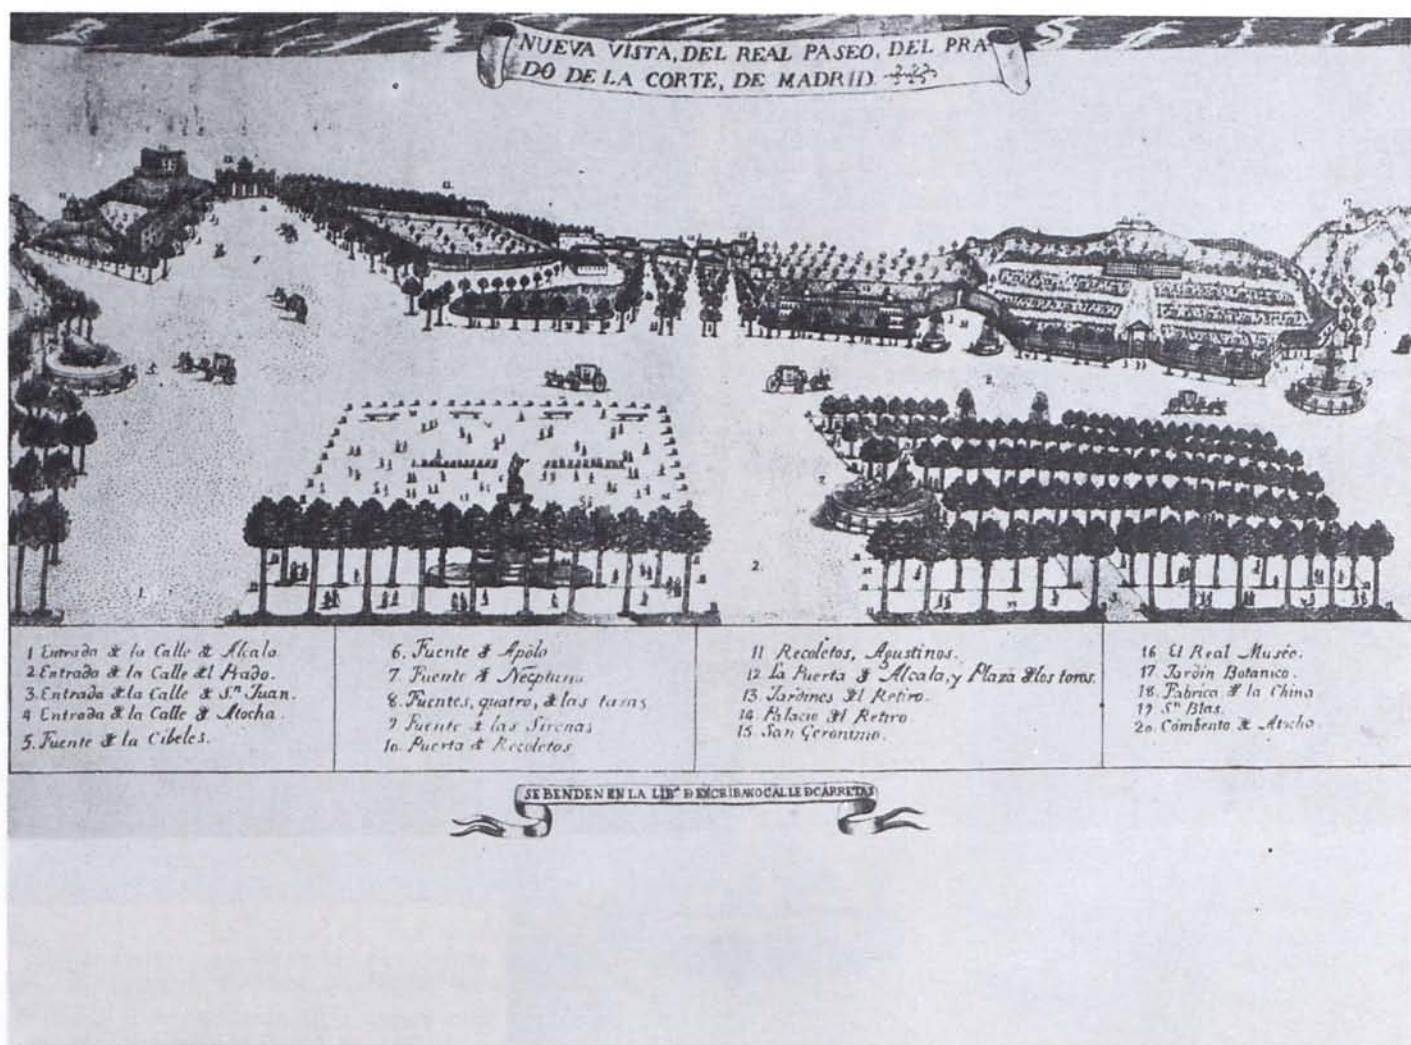 NUEVA VISTA, DEL REAL PASEO, DEL PRA-
DO DE LA CORTE, DE MADRID
1 Entrada de la Calle de Alcala
2 Entrada de la Calle del Prado.
3. Entrada de la Calle de Sn. Juan.
4 Entrada de la Calle de Atocha.
5. Fuente de la Cibeles.
6. Fuente de Apolo
7 Fuente de Neptuno
8. Fuentes, quatro, de las tazas
9 Fuente de las Sirenas
10. Puerta de Recoletos
11 Recoletos, Agustinos.
12 La Puerta de Alcala, y Plaza de los toros.
13. Jardines del Retiro.
14. Palacio del Retiro.
15. San Geronimo.
16 El Real Museo.
17 Jardin Botanico.
18. Fabrica de la China
19. Sn. Blas.
20. Combento de Atocha
SE BENDEN EN LA LIBa. D ESCRIBANO CALLE D CARRETAS